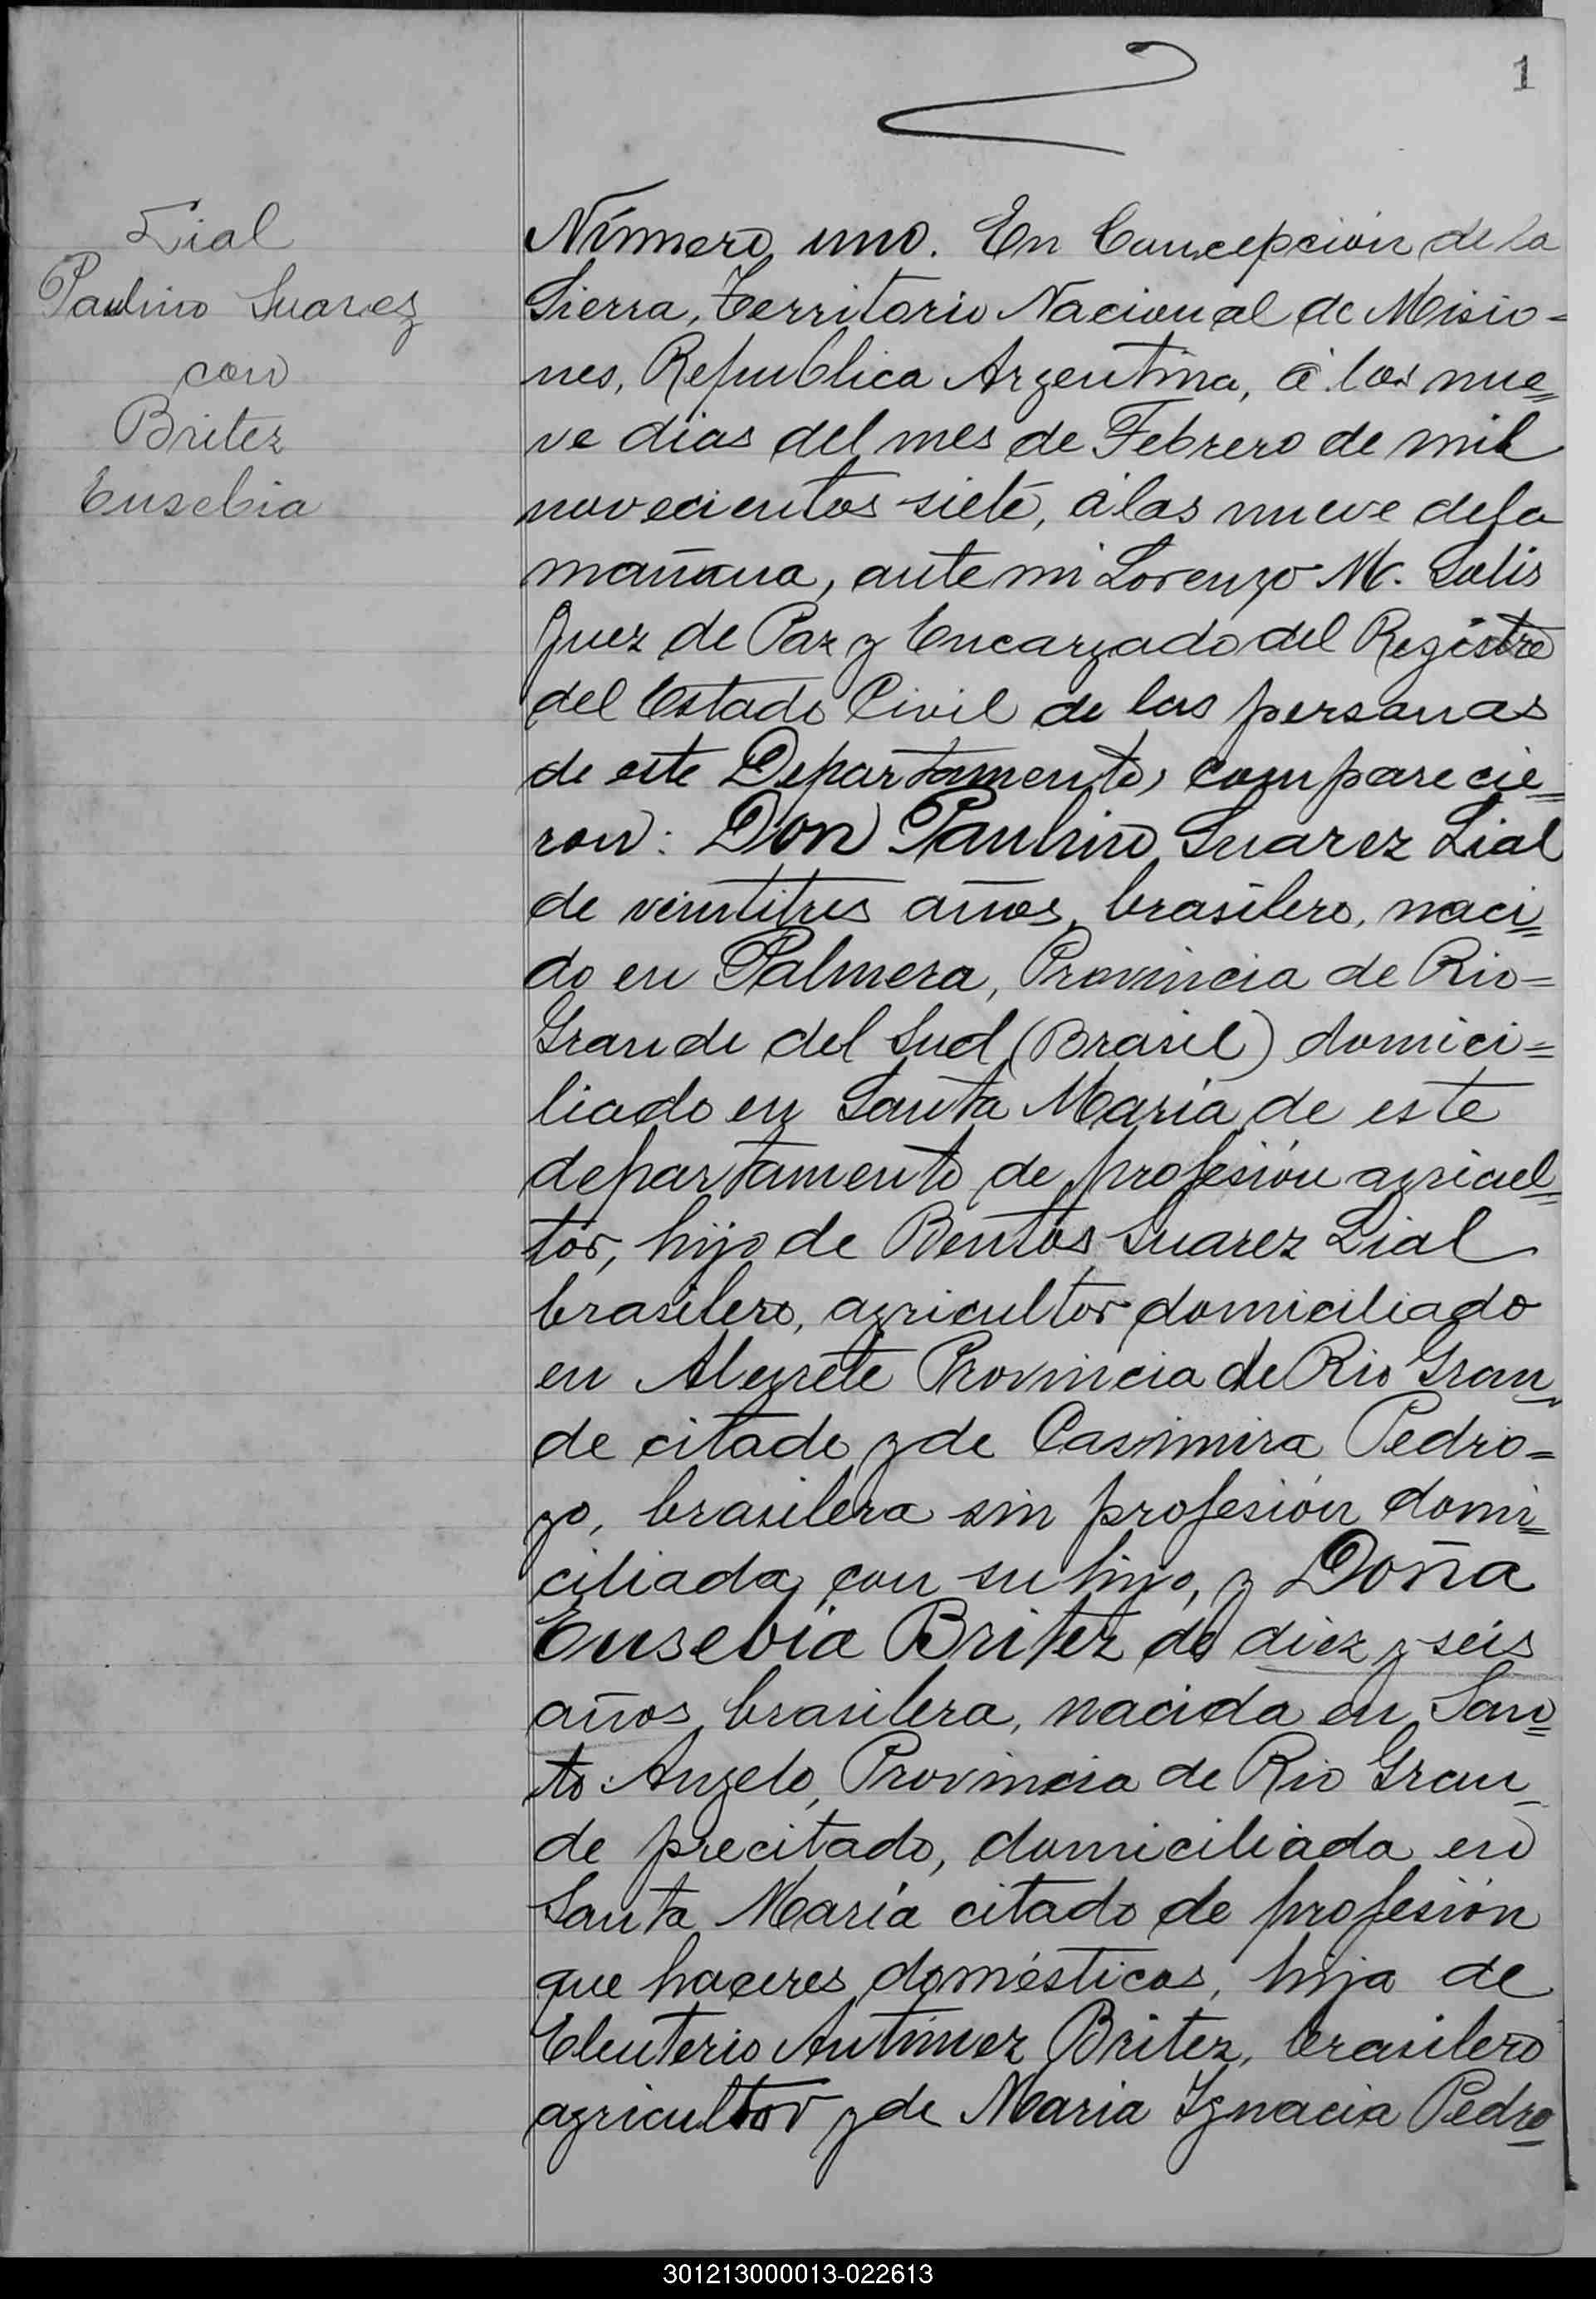 1
Lial
Paulino Suarez
con
Britez
Eusebia
Número uno. En Concepción de la
Sierra, Territorio Nacional de Misio=
nes, Republica Argentina, á los nue=
ve dias del mes de Febrero de mil
novecientos siete, á las nueve de la
mañana, ante mi Lorenzo M. Solis
Juez de Paz y Encargado del Registro
del Estado Civil de las personas
de este Departamento, comparecie=
ron: Don Paulino Suarez Lial
de veintitres años, brasilero, naci=
do en Palmera, Provincia de Rio=
Grande del Sud (Brasil) domici=
liado en Santa María de este
departamento de profesión agricul=
tor, hijo de Bentos Suarez Lial
brasilero, agricultor domiciliado
en Alegrete Provincia de Rio Gran
de citado y de Casimira Pedro=
zo, brasilera sin profesión domi=
ciliada con su hijo, y Doña
Eusebia Britez de diez y seis
años, brasilera, nacida en San=
to Angelo, Provincia de Rio Gran
de precitado, domiciliada en
Santa María citado de profesión
que haceres domésticos, hija de
Eleuterio Antunez Britez, brasilero
agricultor y de Maria Ygnacia Pedro
301213000013-022613